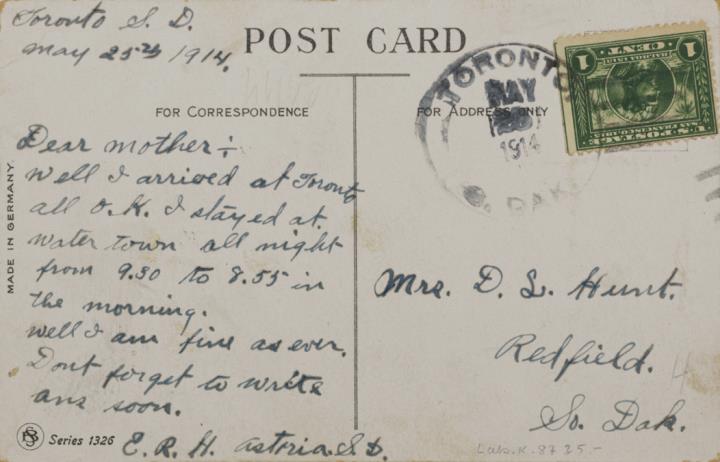 Toronto S. D.
May 25th 1914.
POST CARD
FOR CORRESPONDENCE
FOR ADDRESS ONLY
TORONTO
MAY
1914
S. DAK.
1 CENT 1
U.S. POSTAGE
MADE IN GERMANY.
Dear Mother ÷
Well I arrived at Toronto
all O.K. I stayed at
Water town all night
from 9.30 to 8.55 in
the morning.
Well I am fine as ever.
Dont forget to write
ans soon.
E. R. H. Astoria S.D.
Series 1326
Mrs. D. L. Hunt.
Redfield.
So. Dak.